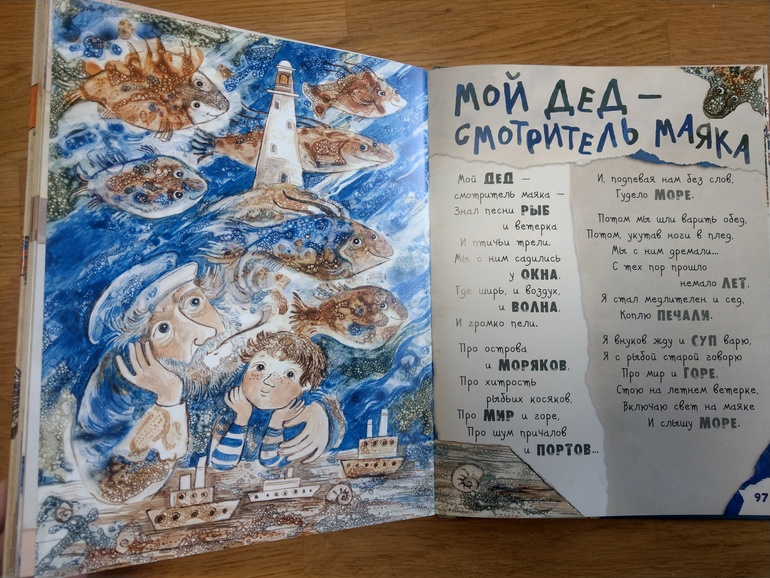 МОЙ ДЕД –
СМОТРИТЕЛЬ МАЯКА
Мой ДЕД –
смотритель маяка –
Знал песни РЫБ
и ветерка
И птичьи трели.
Мы с ним садились
у ОКНА.
Где ширь, и воздух,
и ВОЛНА.
И громко пели.
Про острова
и МОРЯКОВ.
Про хитрость
рыбьих косяков,
Про МИР и горе,
Про шум причалов
и ПОРТОВ...
И, подпевая нам без слов,
Гудело МОРЕ.
Потом мы шли варить обед,
Потом, укутав ноги в плед,
Мы с ним дремали...
С тех пор прошло
немало ЛЕТ.
Я стал медлителен и сед,
Коплю ПЕЧАЛИ.
Я внуков жду и СУП варю,
Я с рыбой старой говорю
Про мир и ГОРЕ.
Стою на летнем ветерке,
Включаю свет на маяке
И слышу МОРЕ.
97